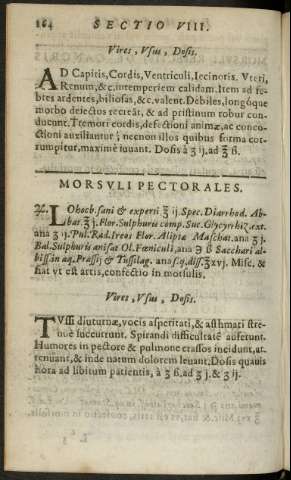 164 SECTIO VIII.
Vires, Vsus, Dosis.
AD Capitis, Cordis, Ventriculi, Iecinoris. Vteri,
Renum, &c, intemperiem calidam. Item ad fe-
bres ardentes, biliosas, &c. valent. Debiles, longóque
morbo deiectos recreãt, & ad pristinum robur con-
ducunt. Tremori cordis, defectioni animæ, ac conco-
ctioni auxiliantur; necnon illos quibus forma cor-
rumpitur, maximè iuvant. Dosis à ʒ ij. ad ℥ ß.
MORSVLI PECTORALES.
℞. LOhoch. sani & experti ℥ ij. Spec. Diarrhod. Ab-
bat. ʒ j. Flor. Sulphuris comp. Suc. Glycyrhiz. ext.
ana ʒ ij. Pul. Rad. Ireos Flor. Aliptæ Moschat. ana ʒ j.
Bal. Sulphuris anisat Ol. Fœniculi, ana ℈ ß Sacchari al-
bissim aq. Prassij & Tussilag. ana s.q. diss. ℥ xvj. Misc. &
fiat vt est artis, confectio in morsulis.
Vires, Vsus, Dosis.
TVssi diuturnæ, vocis asperitati, & asthmati stre-
nuè succurrunt. Spirandi difficultatē auferunt.
Humores in pectore & pulmone crassos incidunt, at-
tenuant, & inde natum dolorem levant. Dosis quavis
hora ad libitum patientis, à ʒ ß. ad ʒ j. & ʒ ij.